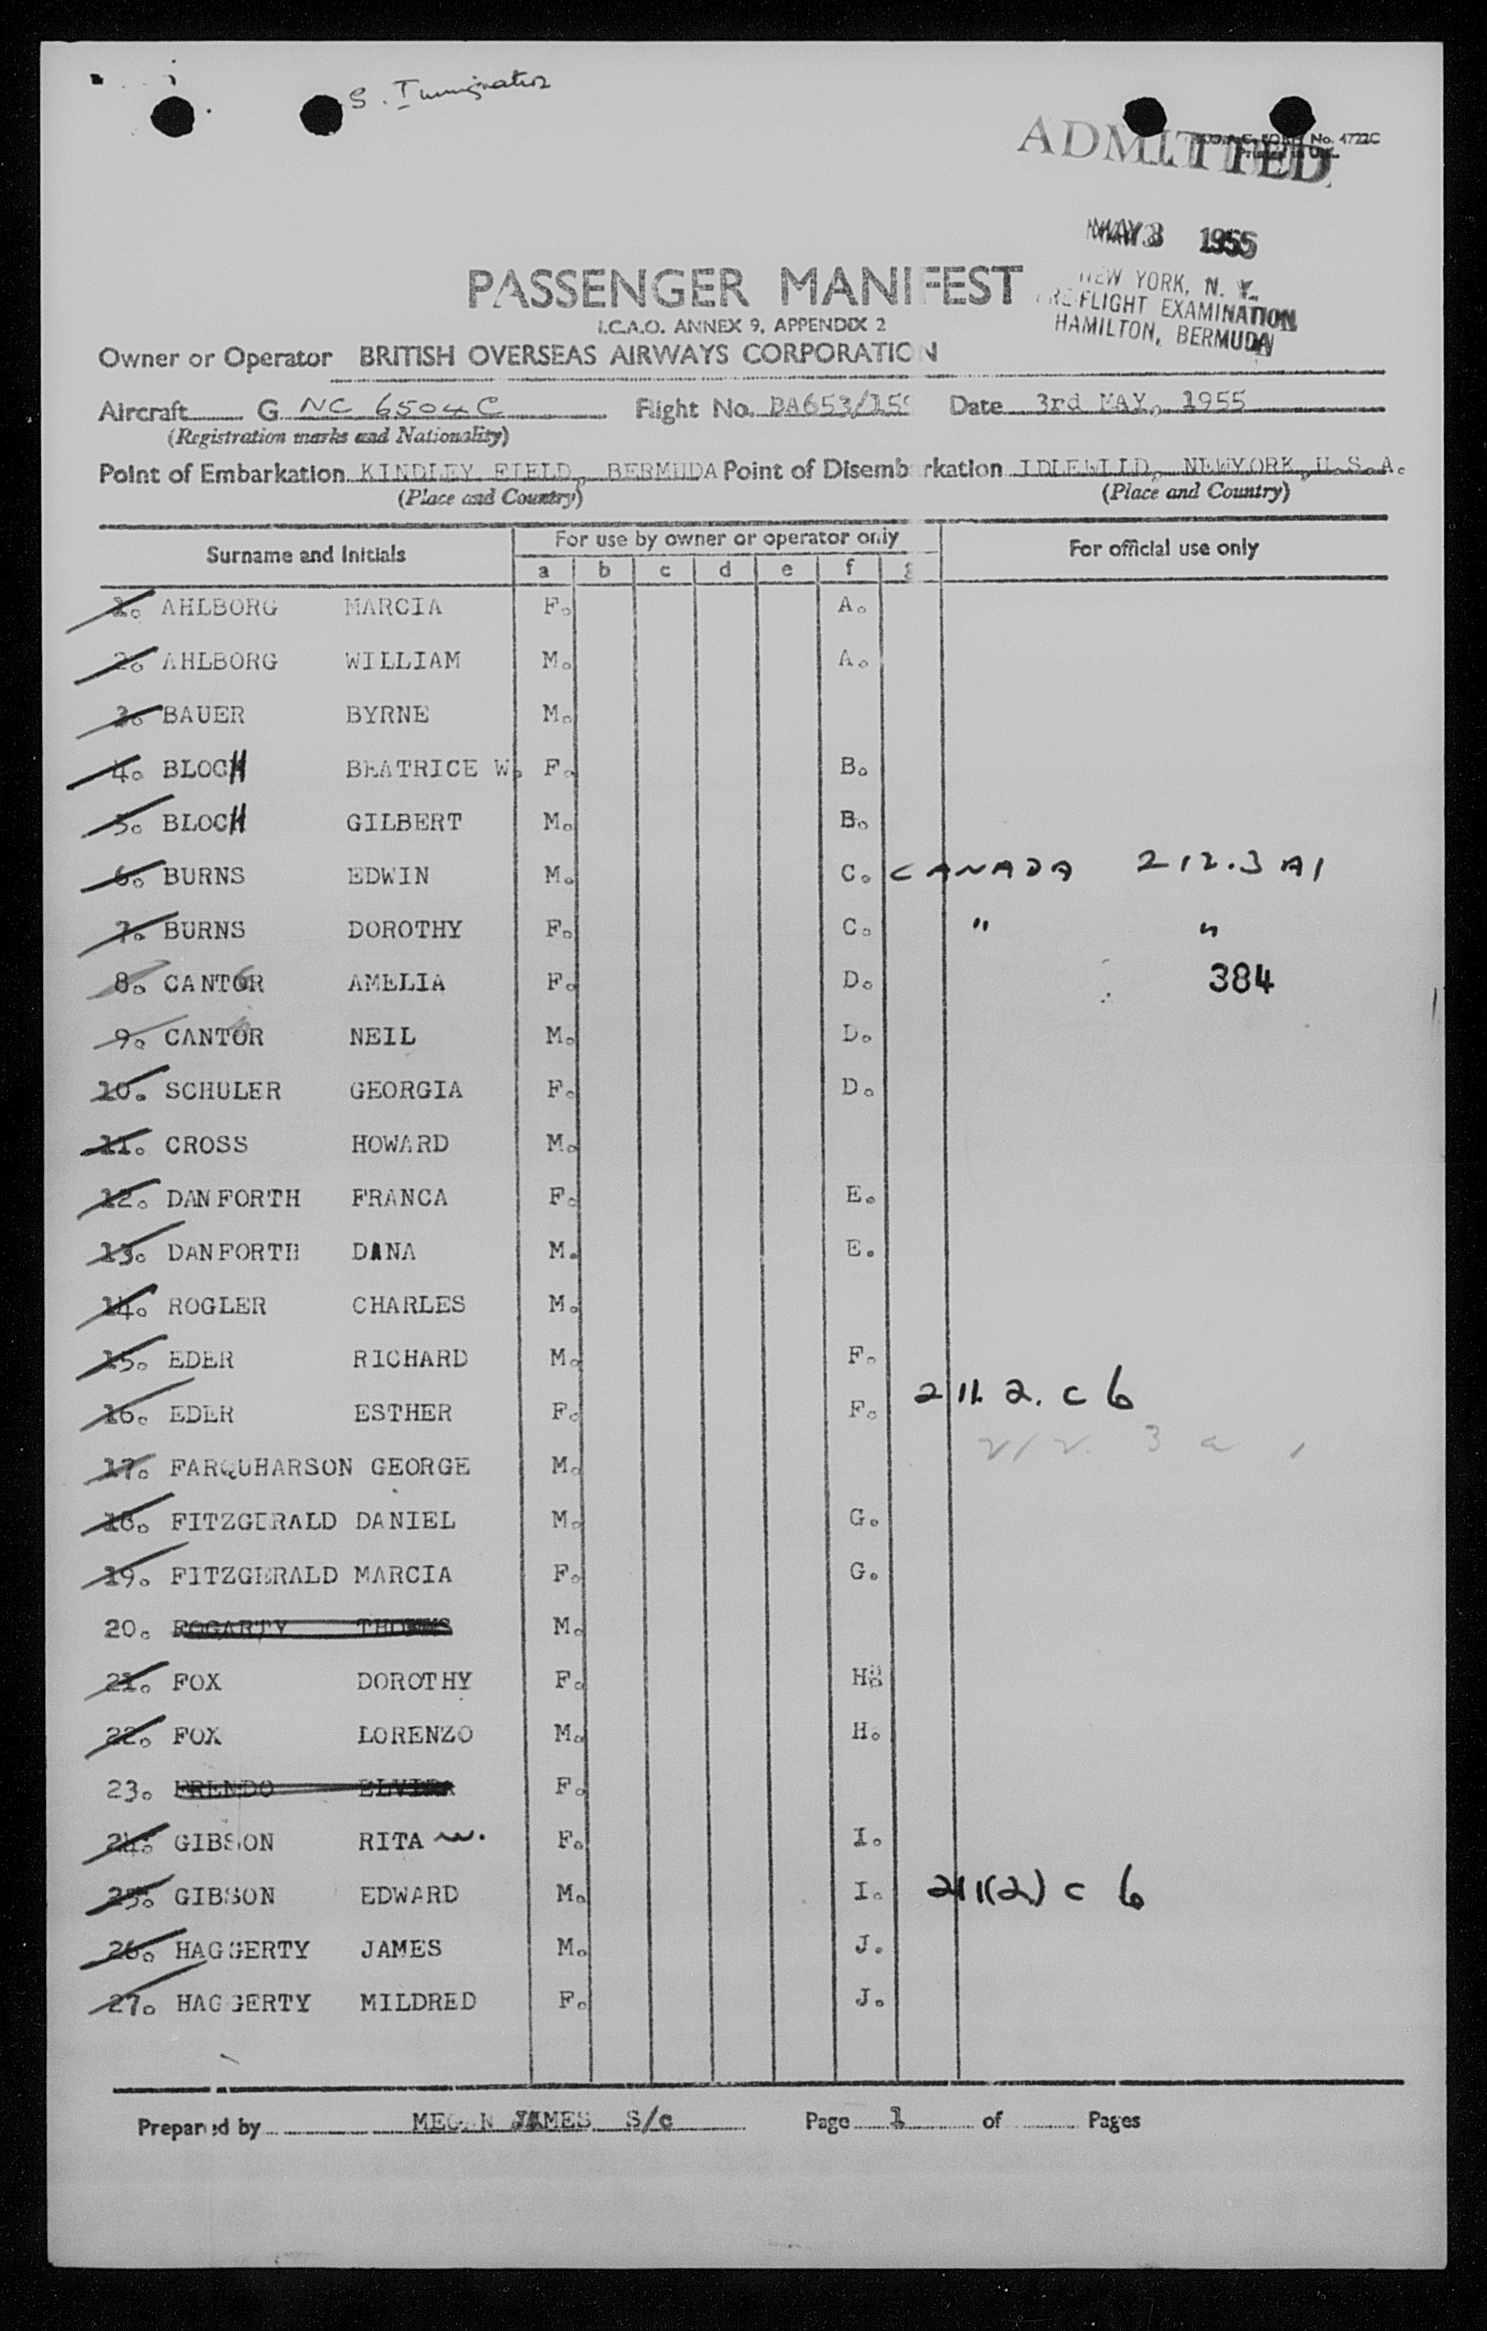 S. Immigration
ADMITTED
No. 4722C
MAY 3 1955
NEW YORK, N. Y.
PRE-FLIGHT EXAMINATION
HAMILTON, BERMUDA
PASSENGER MANIFEST
I.C.A.O. ANNEX 9, APPENDIX 2
Owner or Operator BRITISH OVERSEAS AIRWAYS CORPORATION
Aircraft G NC 6504C Flight No. BA653/159 Date 3rd MAY, 1955
(Registration marks and Nationality)
Point of Embarkation KINDLEY FIELD, BERMUDA Point of Disembarkation IDLEWILD, NEWYORK, U.S.A.
(Place and Country) (Place and Country)
Surname and Initials For use by owner or operator only For official use only
a b c d e f g
1. AHLBORG MARCIA F. A.
2. AHLBORG WILLIAM M. A.
3. BAUER BYRNE M.
4. BLOCH BEATRICE W. F. B.
5. BLOCH GILBERT M. B.
6. BURNS EDWIN M. C. CANADA 212.3 A1
7. BURNS DOROTHY F. C. " "
8. CANTOR AMELIA F. D. 384
9. CANTOR NEIL M. D.
10. SCHULER GEORGIA F. D.
11. CROSS HOWARD M.
12. DANFORTH FRANCA F. E.
13. DANFORTH DANA M. E.
14. ROGLER CHARLES M.
15. EDER RICHARD M. F.
16. EDER ESTHER F. F. 211. 2. c 6
212. 3 a 1
17. FARQUHARSON GEORGE M.
18. FITZGERALD DANIEL M. G.
19. FITZGERALD MARCIA F. G.
20. FOGARTY THOMAS M.
21. FOX DOROTHY F. H.
22. FOX LORENZO M. H.
23. FRENDO ELVIRA F.
24. GIBSON RITA w. F. I.
25. GIBSON EDWARD M. I. 211(2) c 6
26. HAGGERTY JAMES M. J.
27. HAGGERTY MILDRED F. J.
Prepared by MEGAN JAMES S/c Page 1 of Pages